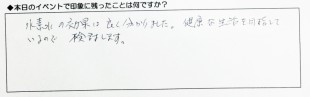 ◆本日のイベントで印象に残ったことは何ですか?
水素水の効果は良く分かりました。健康な生活を目指して
いるので 検討します。